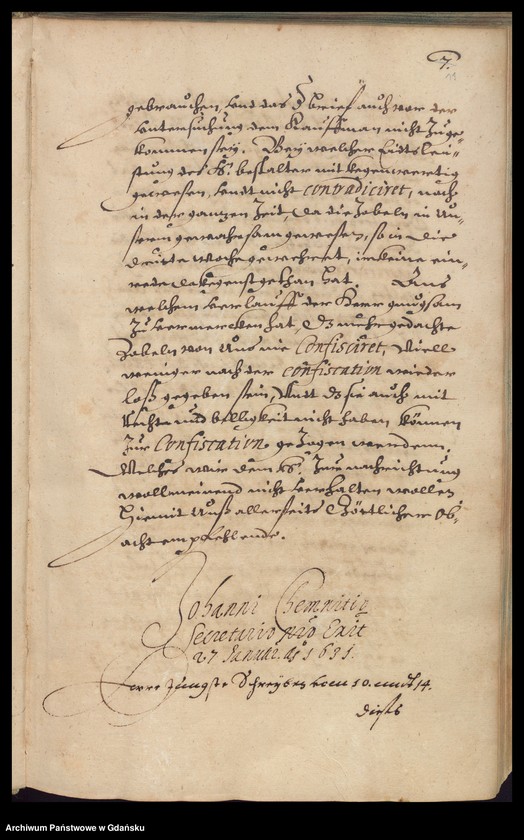 7.
gebrauchen, und das der brieff auch vor der
untersuchung dem Kauffman nicht zuge-
kommen sey. Bey welcher Eidtslei-
stung des H: bestalter mit kegenwertig
gewesen, undt nicht contradiciret, noch
in der ganzen Zeit, da die Zobeln in un-
serm gewahrsam gewesen, so in die
dritte woche gewehret, im keine ein-
rede dakegenst gethan hat. Aus
welchem verlauff der Herr gnugsam
zu vermercken hat, dz mehr gedachte
Zobeln von uns nie Confisciret, viell
weniger nach der confiscation wieder
loß gegeben sein, undt dz sie auch mit
Recht und billigkeit nicht haben können
zur Confiscation gezogen werden.
Welches wir dem H. zur nachrichtung
wollmeinend nicht verhalten wollen
Hiemit unß allerseits Göttlicher ob-
acht empfehlende.
Johanni Chemnitio
Secretario pro Exit
27 Januar. aō 1631.
jüngste Schreyben vom 10. undt 14.
dieses
Archiwum Państwowe w Gdańsku